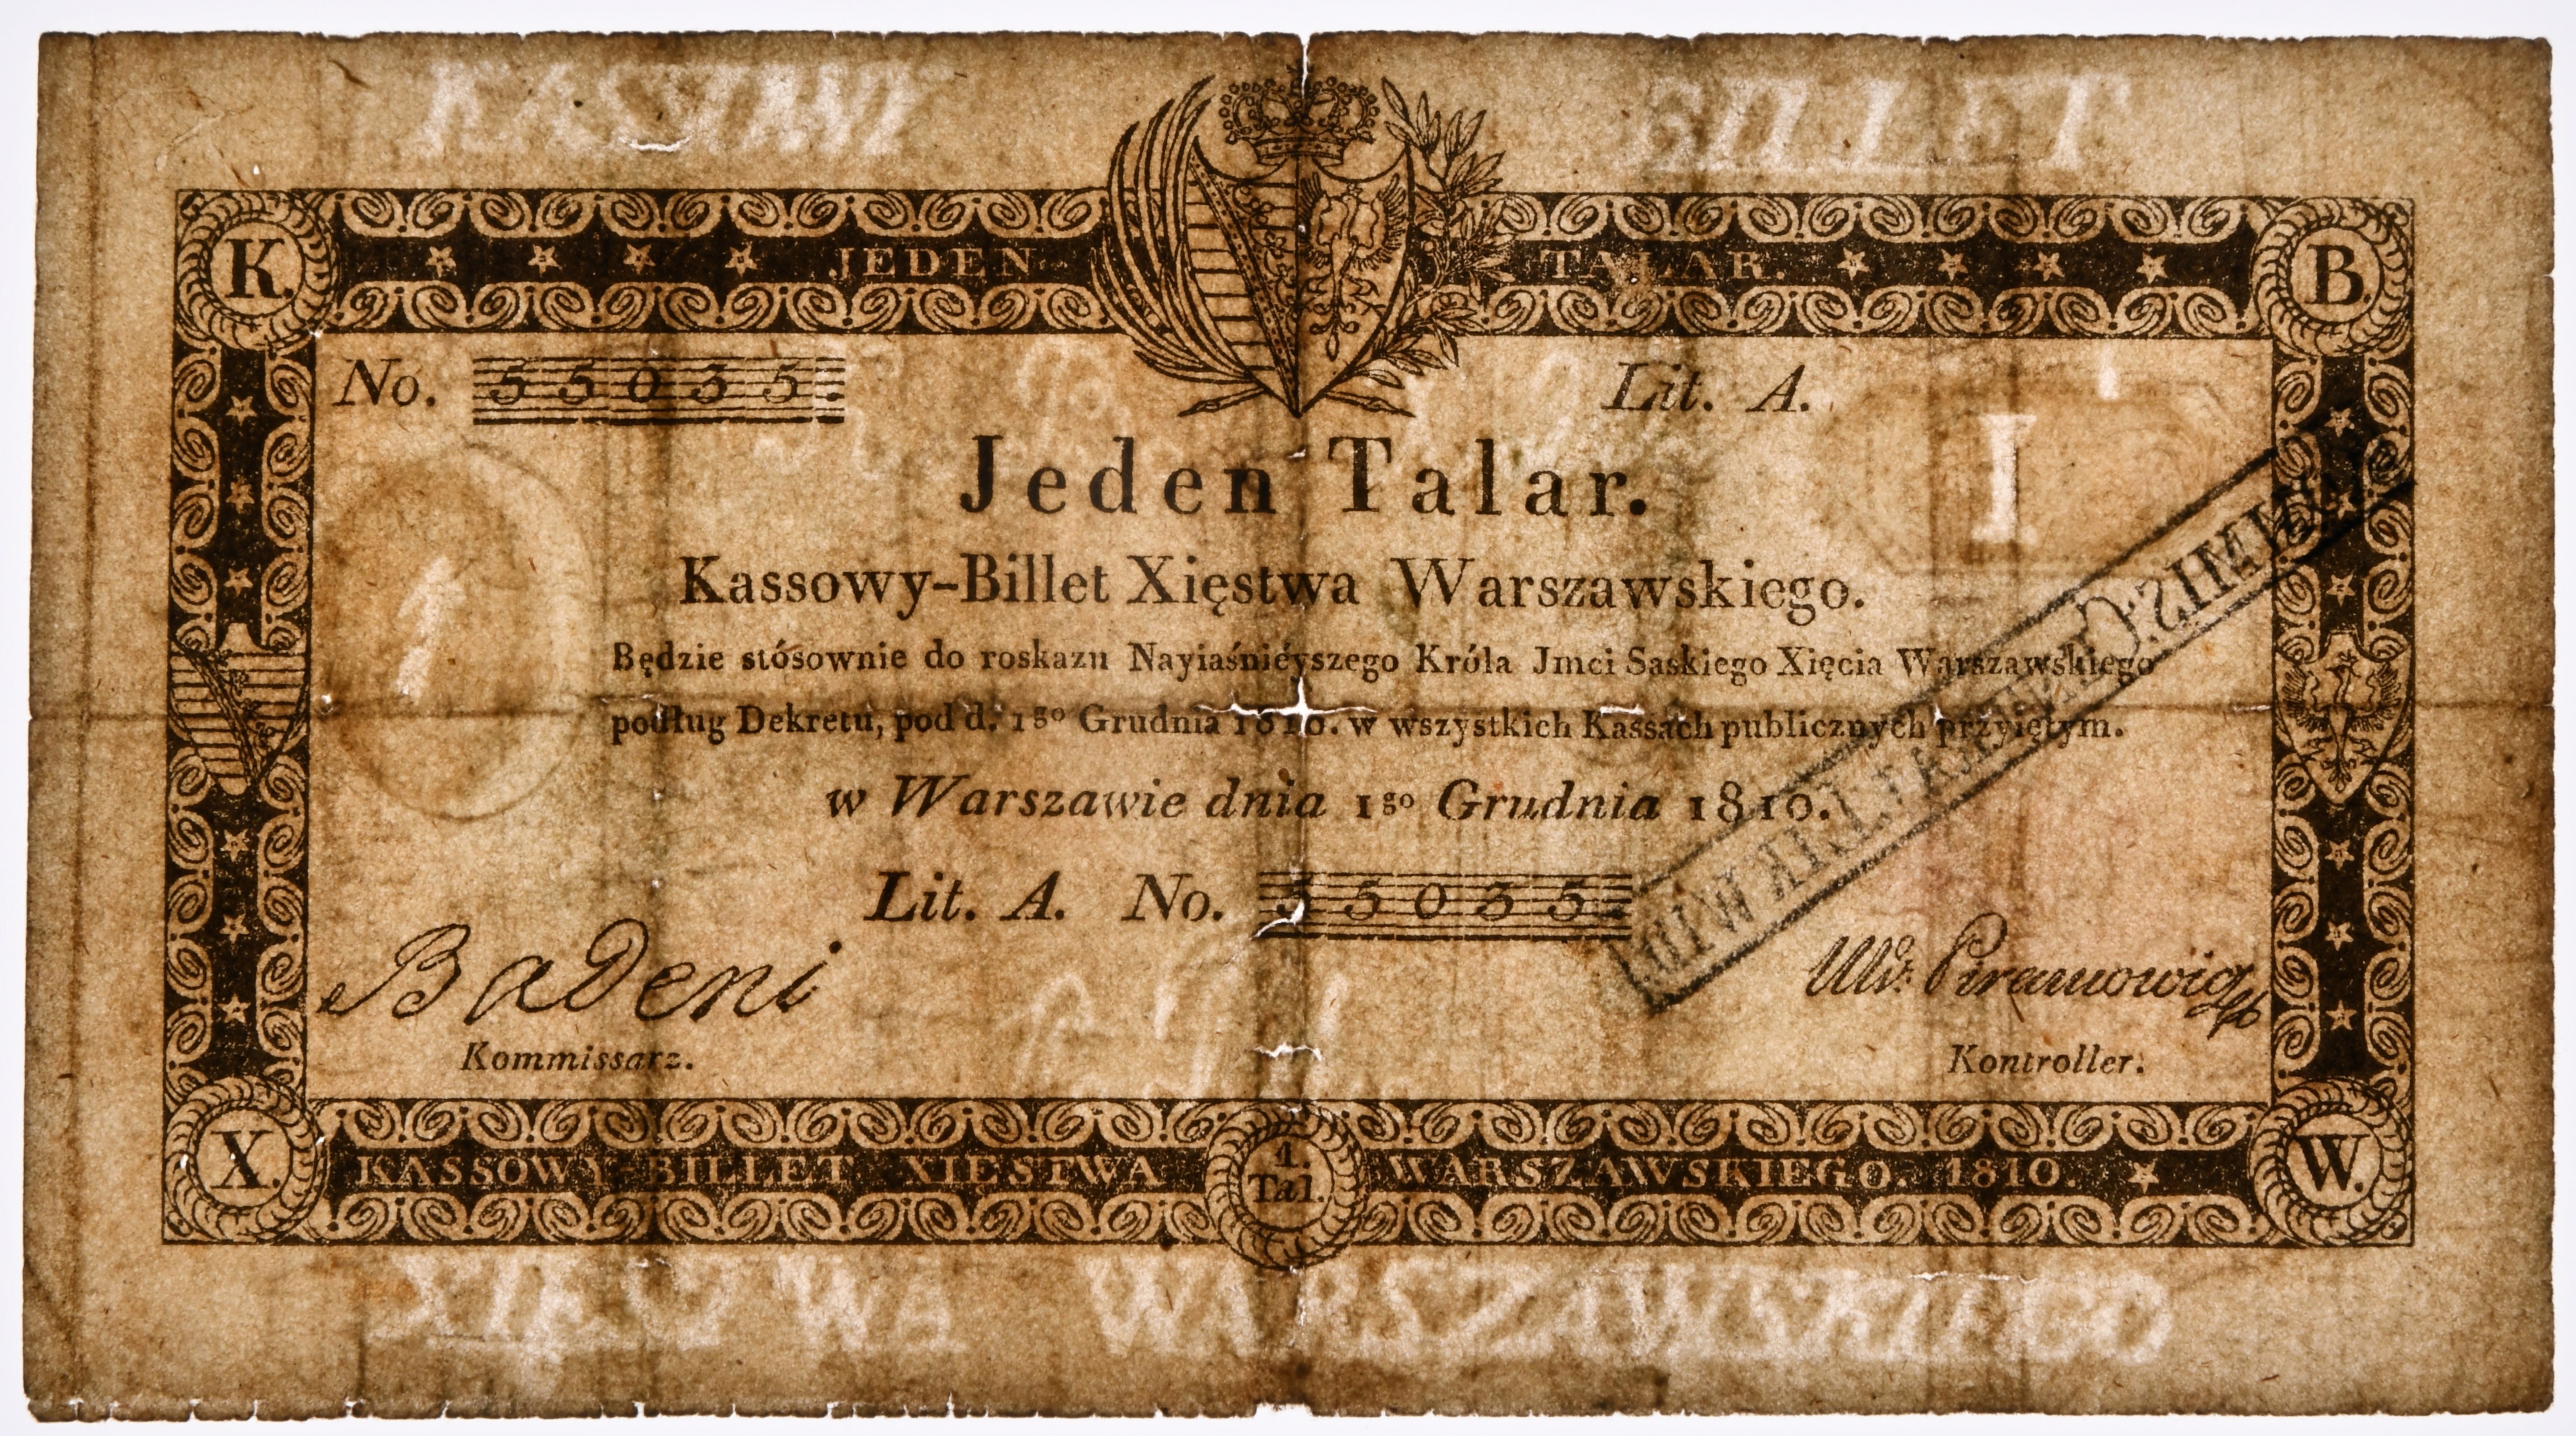 BILLET
K.
JEDEN
TALAR.
B.
No. 55035.
Lit. A.
I
Jeden Talar.
1
Kassowy-Billet Xięstwa Warszawskiego.
Będzie stósownie do roskazu Nayiaśnieyszego Króla Jmci Saskiego Xięcia Warszawskiego
podług Dekretu, pod d. 1go Grudnia 1810. w wszystkich Kassach publicznych przyiętym.
w Warszawie dnia 1go Grudnia 1810.
Lit. A. No. 55035.
Badeni
Piramowicz
Kommissarz.
Kontroller.
X.
KASSOWY-BILLET XIESTWA
1.
Tal.
WARSZAWSKIEGO. 1810.
W.
XIESTWA WARSZAWSKIEGO